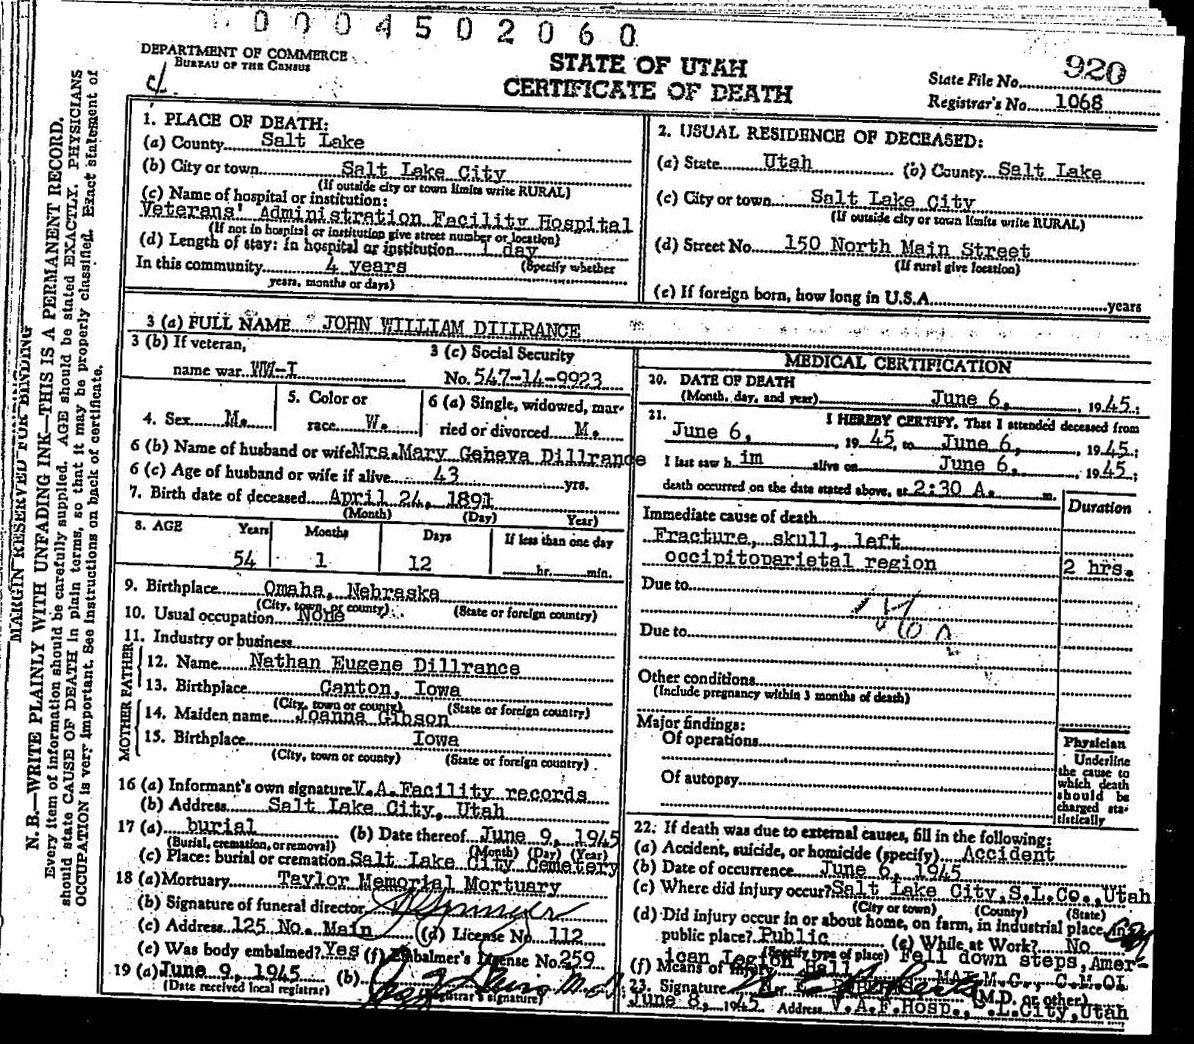 0004502060
DEPARTMENT OF COMMERCE
BUREAU OF THE CENSUS
STATE OF UTAH
CERTIFICATE OF DEATH
State File No. 920
Registrar's No. 1068
MARGIN RESERVED FOR BINDING
N. B.—WRITE PLAINLY WITH UNFADING INK—THIS IS A PERMANENT RECORD.
Every item of information should be carefully supplied. AGE should be stated EXACTLY. PHYSICIANS
should state CAUSE OF DEATH in plain terms, so that it may be properly classified. Exact statement of
OCCUPATION is very important. See instructions on back of certificate.
1. PLACE OF DEATH:
(a) County Salt Lake
(b) City or town Salt Lake City
(If outside city or town limits write RURAL)
(c) Name of hospital or institution:
Veterans' Administration Facility Hospital
(If not in hospital or institution give street number or location)
(d) Length of stay: In hospital or institution 1 day
In this community 4 years (Specify whether
years, months or days)
2. USUAL RESIDENCE OF DECEASED:
(a) State Utah (b) County Salt Lake
(c) City or town Salt Lake City
(If outside city or town limits write RURAL)
(d) Street No. 150 North Main Street
(If rural give location)
(e) If foreign born, how long in U.S.A. years
3 (a) FULL NAME JOHN WILLIAM DILLRANCE
3 (b) If veteran,
name war WW-I
3 (c) Social Security
No. 547-14-9923
4. Sex M.
5. Color or
race W.
6 (a) Single, widowed, mar-
ried or divorced M.
6 (b) Name of husband or wife Mrs. Mary Geneva Dillrance
6 (c) Age of husband or wife if alive 43 yrs.
7. Birth date of deceased April 24, 1891
(Month) (Day) Year)
8. AGE Years Months Days If less than one day
54 1 12 hr. min.
9. Birthplace Omaha, Nebraska
(City, town, or county) (State or foreign country)
10. Usual occupation None
11. Industry or business
FATHER
12. Name Nathan Eugene Dillrance
13. Birthplace Canton, Iowa
(City, town or county) (State or foreign country)
MOTHER
14. Maiden name Joanna Gibson
15. Birthplace Iowa
(City, town or county) (State or foreign country)
16 (a) Informant's own signature V.A. Facility records
(b) Address Salt Lake City, Utah
17 (a) burial (b) Date thereof June 9, 1945
(Burial, cremation, or removal) (Month) (Day) (Year)
(c) Place: burial or cremation Salt Lake City Cemetery
18 (a) Mortuary Taylor Memorial Mortuary
(b) Signature of funeral director
(c) Address 125 No. Main (d) License No. 112
(e) Was body embalmed? Yes (f) Embalmer's License No. 259
19 (a) June 9, 1945 (b)
(Date received local registrar) (Registrar's signature)
MEDICAL CERTIFICATION
20. DATE OF DEATH
(Month, day, and year) June 6, 1945;
21. I HEREBY CERTIFY, That I attended deceased from
June 6, 1945, to June 6, 1945;
I last saw h im alive on June 6, 1945;
death occurred on the date stated above, at 2:30 A. m.
Duration
Immediate cause of death
Fracture, skull, left
occipitoparietal region 2 hrs.
Due to
Due to
Other conditions
(Include pregnancy within 3 months of death)
Major findings:
Of operations
Of autopsy
Physician
Underline
the cause to
which death
should be
charged sta-
tistically
22. If death was due to external causes, fill in the following:
(a) Accident, suicide, or homicide (specify) Accident
(b) Date of occurrence June 6, 1945
(c) Where did injury occur? Salt Lake City, S.L.Co., Utah
(City or town) (County) (State)
(d) Did injury occur in or about home, on farm, in industrial place, in
public place? Public (e) While at Work? No
(Specify type of place) Fell down steps, Amer-
(f) Means of injury ican Legion Hall
23. Signature MAJ. M.C., C.M.O.
(M.D. or other)
June 8, 1945 Address V.A.F. Hosp., S.L. City, Utah